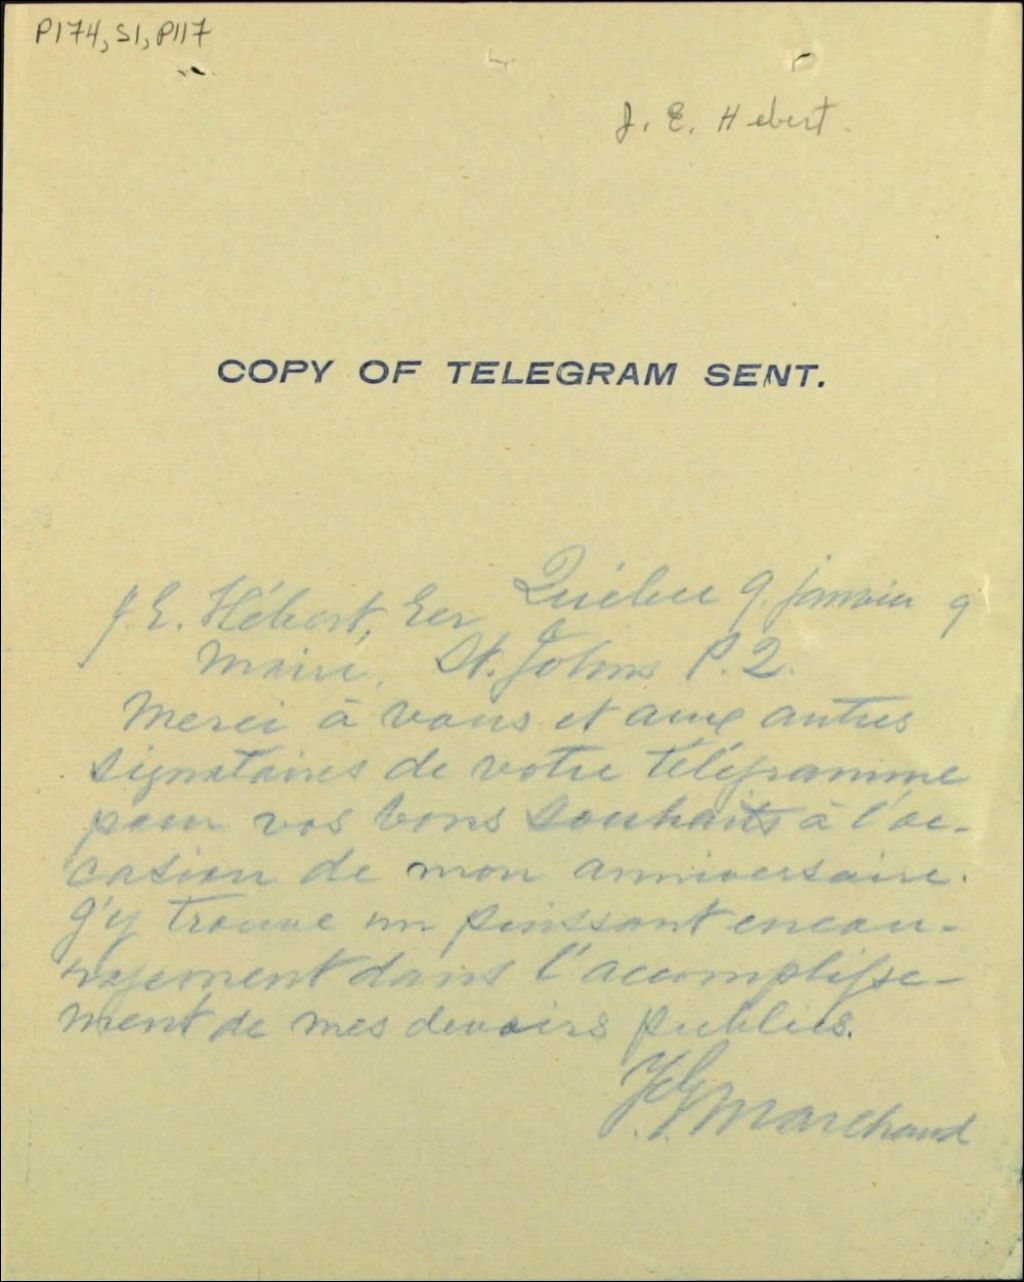 P174, S1, P117
J. E. Hebert.
COPY OF TELEGRAM SENT.
Québec 9 janvier 9
J. E. Hébert, Ecr
Maire, St. Johns P.Q.
Merci à vous et aux autres
signataires de votre télégramme
pour vos bons souhaits à l'oc-
casion de mon anniversaire.
J'y trouve un puissant encou-
ragement dans l'accomplisse-
ment de mes devoirs publics.
F. G. Marchand